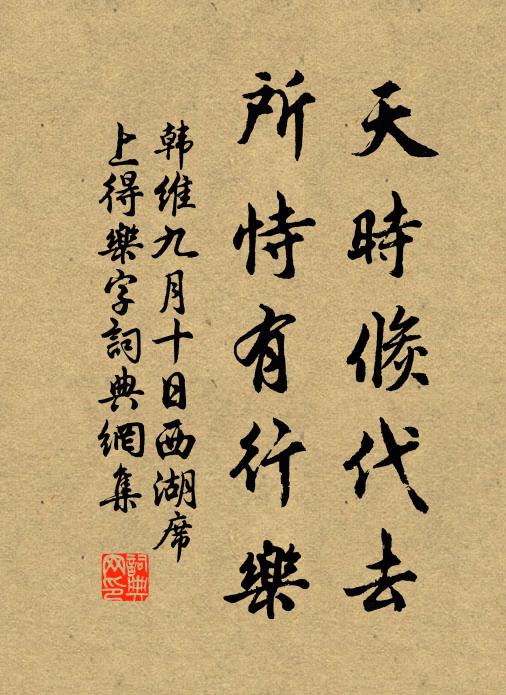 天時倏代去
所恃有行樂
韩維九月十日西湖席
上得樂字詞典網集
詞典
网印